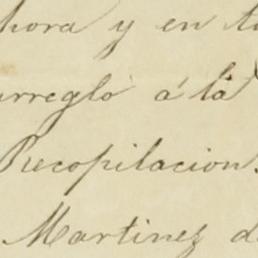 hora y en
arreglo á la
Recopilacion.
Martinez d